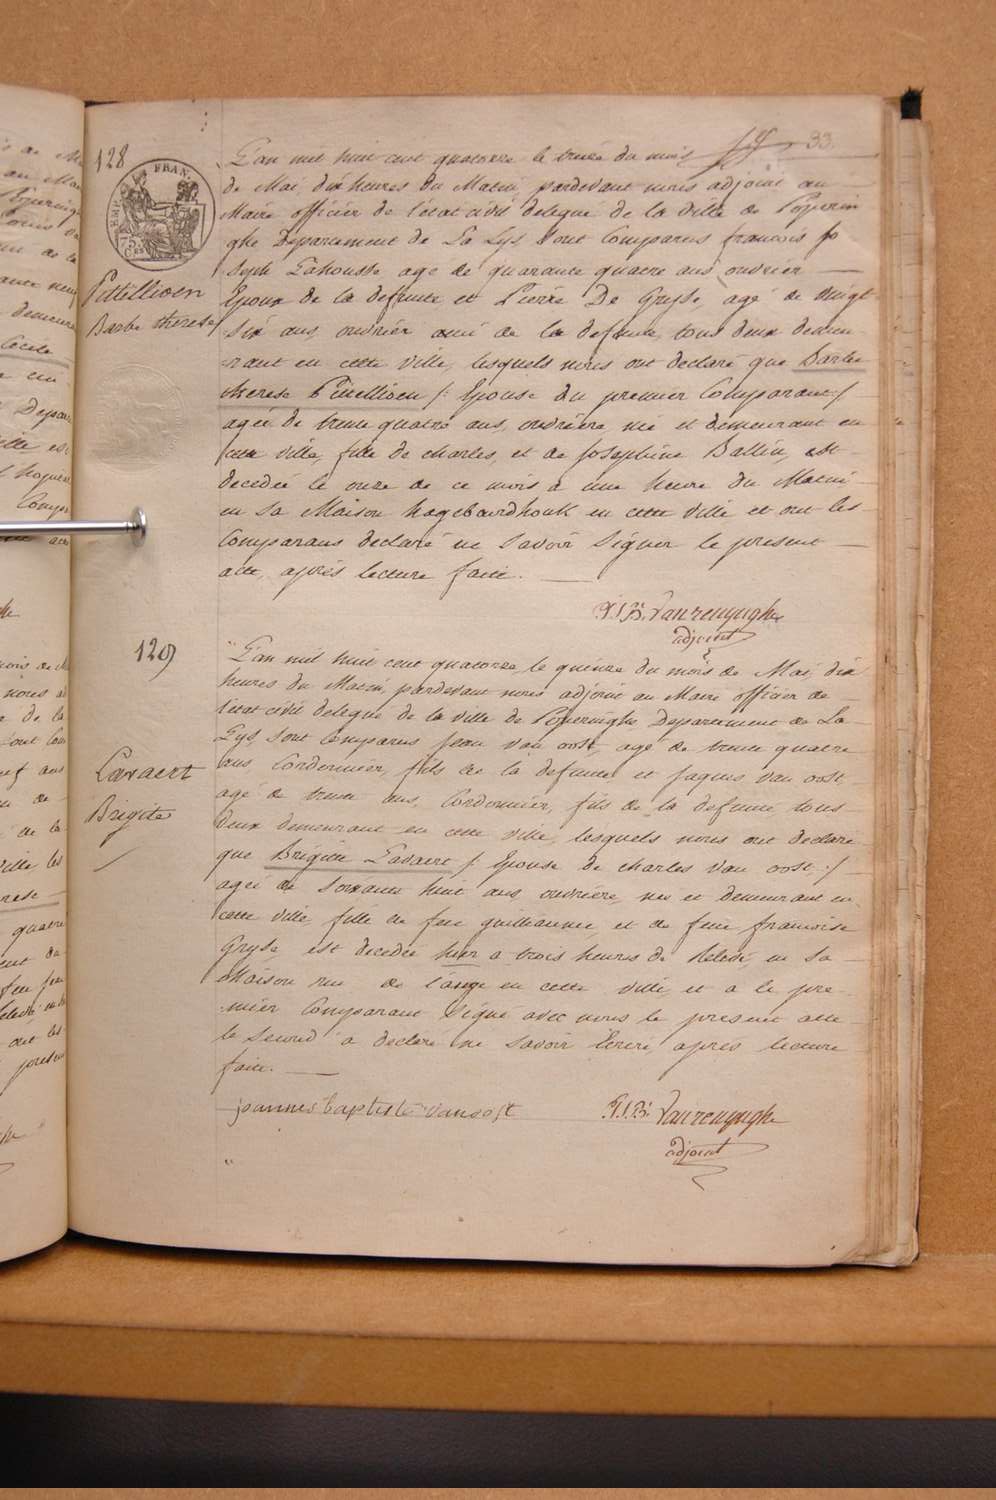 33.
128
EMP. FRAN.
75 Ces
Pittellioen
Barbe therese
L'an mil huit cent quatorze le treize du mois
de Mai dix heures du Matin, pardevant nous adjoint au
Maire officier de l'état civil delegué de la Ville de Poperin
ghe Departement de La Lys sont Comparus francois jo
seph Lahousse agé de quarante quatre ans, ouvrier
Epoux de la defunte et Pierre De Gryse, agé de vingt
six ans, ouvrier ami de la defunte, tous deux demeu
rant en cette ville, lesquels nous ont declaré que Barbe
therese Pittellioen /: Epouse du premier Comparant /
agée de trente quatre ans, ouvrière née et demeurant en
cette ville, fille de charles, et de josephine Ballieu, est
decedée le onze de ce mois à une heure du Matin
en sa Maison hagebaerdhouk en cette ville et ont les
Comparans declaré ne savoir signer le present
acte, après lecture faite.
P.J.B. Vanrenynghe
adjoint
129
Lavaert
Brigite
L'an mil huit cent quatorze, le quinze du mois de Mai, dix
heures du Matin, pardevant nous adjoint au Maire officier de
l'etat civil delegué de la ville de Poperinghe, Departement de La
Lys, sont Comparus jean van oost, agé de trente quatre
ans Cordonnier, fils de la defunte et jaques van oost,
agé de trente ans, Cordonnier, fils de la defunte, tous
deux demeurant en cette ville, lesquels nous ont declaré
que Brigitte Lavaert /: Epouse de charles van oost :/
agée de soixante huit ans, ouvrière, née et demeurant en
cette ville, fille de feu guilliaume et de feue francoise
Gryse est decedée hier a trois heures de Relevée, en sa
Maison rue de l'ange en cette ville, et a le pre
mier Comparant signé avec nous le present acte
le second a declaré ne savoir Ecrire, après lecture
faite.
joannes baptiste vanoost
P.J.B. Vanrenynghe
adjoint